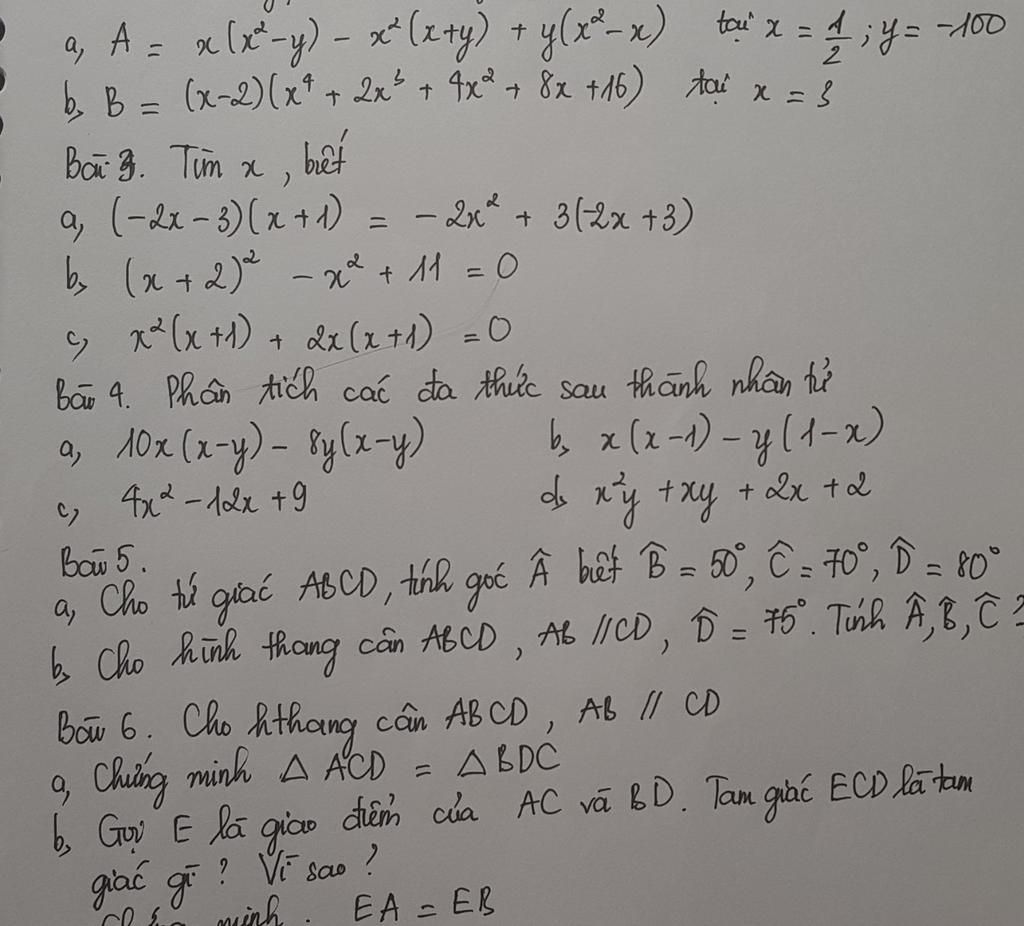 a, A = x(x²-y) - x²(x+y) + y(x²-x) tại x = 1/2 ; y = -100
b, B = (x-2)(x⁴ + 2x³ + 4x² + 8x +16) tại x = 3
Bài 3. Tìm x, biết
a, (-2x-3)(x+1) = -2x² + 3(-2x+3)
b, (x+2)² - x² + 11 = 0
c, x²(x+1) + 2x(x+1) = 0
Bài 4. Phân tích các đa thức sau thành nhân tử
a, 10x(x-y) - 8y(x-y) b, x(x-1) - y(1-x)
c, 4x² - 12x + 9 d, x²y + xy + 2x + 2
Bài 5.
a, Cho tứ giác ABCD, tính góc Â biết B̂ = 50°, Ĉ = 70°, D̂ = 80°
b, Cho hình thang cân ABCD, AB // CD, D̂ = 75°. Tính Â, B̂, Ĉ ?
Bài 6. Cho hthang cân ABCD, AB // CD
a, Chứng minh △ ACD = △ BDC
b, Gọi E là giao điểm của AC và BD. Tam giác ECD là tam
giác gì ? Vì sao ?
minh. EA = EB